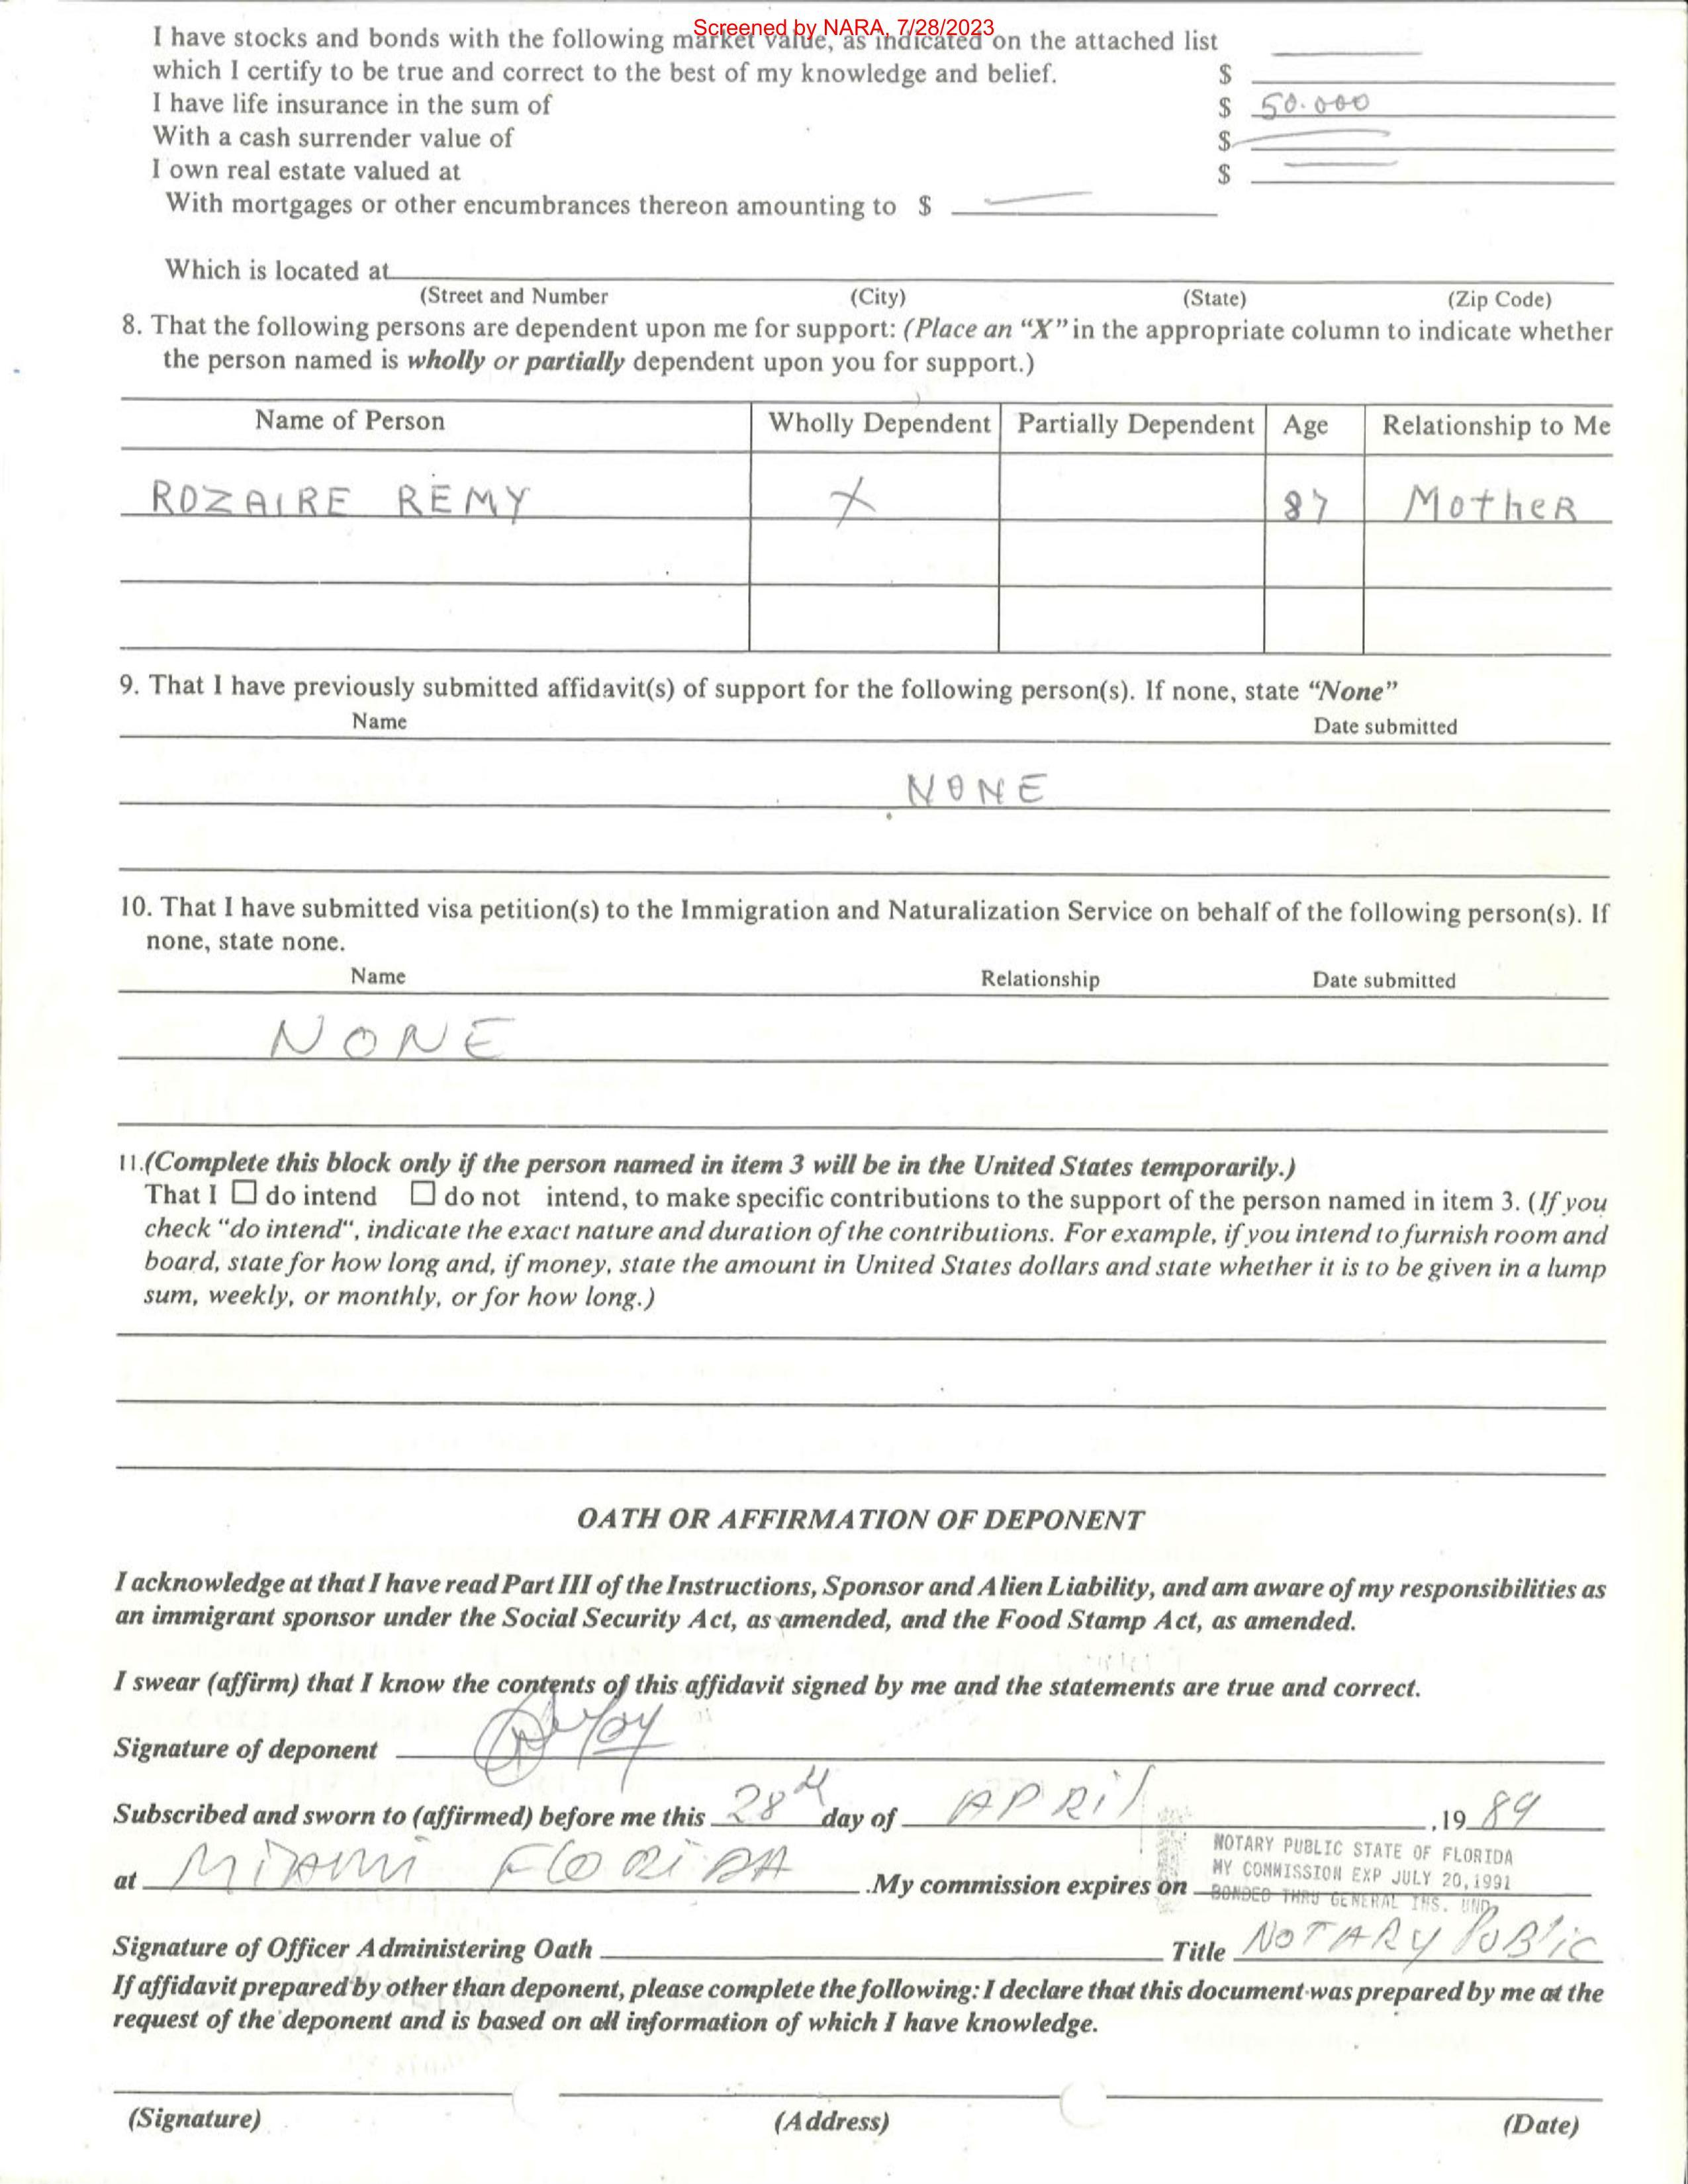 Screened by NARA, 7/28/2023
I have stocks and bonds with the following market value, as indicated on the attached list
which I certify to be true and correct to the best of my knowledge and belief. $
I have life insurance in the sum of $ 50.000
With a cash surrender value of $
I own real estate valued at $
With mortgages or other encumbrances thereon amounting to $
Which is located at
(Street and Number (City) (State) (Zip Code)
8. That the following persons are dependent upon me for support: (Place an “X” in the appropriate column to indicate whether
the person named is wholly or partially dependent upon you for support.)
Name of Person Wholly Dependent Partially Dependent Age Relationship to Me
ROZAIRE REMY X 87 MotheR
9. That I have previously submitted affidavit(s) of support for the following person(s). If none, state “None”
Name Date submitted
NONE
10. That I have submitted visa petition(s) to the Immigration and Naturalization Service on behalf of the following person(s). If
none, state none.
Name Relationship Date submitted
NONE
11.(Complete this block only if the person named in item 3 will be in the United States temporarily.)
That I ☐ do intend ☐ do not intend, to make specific contributions to the support of the person named in item 3. (If you
check “do intend“, indicate the exact nature and duration of the contributions. For example, if you intend to furnish room and
board, state for how long and, if money, state the amount in United States dollars and state whether it is to be given in a lump
sum, weekly, or monthly, or for how long.)
OATH OR AFFIRMATION OF DEPONENT
I acknowledge at that I have read Part III of the Instructions, Sponsor and Alien Liability, and am aware of my responsibilities as
an immigrant sponsor under the Social Security Act, as amended, and the Food Stamp Act, as amended.
I swear (affirm) that I know the contents of this affidavit signed by me and the statements are true and correct.
Signature of deponent
Subscribed and sworn to (affirmed) before me this 28th day of APRil ,19 89
NOTARY PUBLIC STATE OF FLORIDA
MY COMMISSION EXP JULY 20,1991
at MiAmi FloRiDA .My commission expires on BONDED THRU GENERAL INS. UND.
Signature of Officer Administering Oath Title NOTARY PUBlic
If affidavit prepared by other than deponent, please complete the following: I declare that this document was prepared by me at the
request of the deponent and is based on all information of which I have knowledge.
(Signature) (Address) (Date)